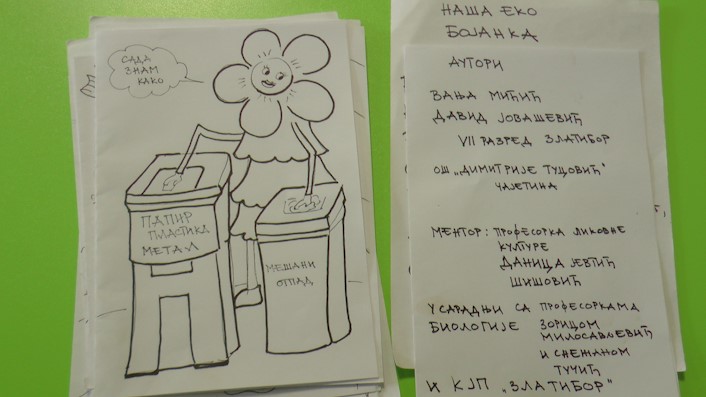 САДА
ЗНАМ
КАКО
ПАПИР
ПЛАСТИКА
МЕТАЛ
МЕШАНИ
ОТПАД
НАША ЕКО
БОЈАНКА
АУТОРИ
ВАЊА МИЋИЋ
ДАВИД ЈОВАШЕВИЋ
VII РАЗРЕД ЗЛАТИБОР
ОШ „ДИМИТРИЈЕ ТУЦОВИЋ"
ЧАЈЕТИНА
МЕНТОР: ПРОФЕСОРКА ЛИКОВНЕ
КУЛТУРЕ
ДАНИЦА ЈЕВТИЋ
ШИШОВИЋ
У САРАДЊИ СА ПРОФЕСОРКАМА
БИОЛОГИЈЕ ЗОРИЦОМ
МИЛОСАВЉЕВИЋ
И СНЕЖАНОМ
ТУЧИЋ
И КЈП „ЗЛАТИБОР"